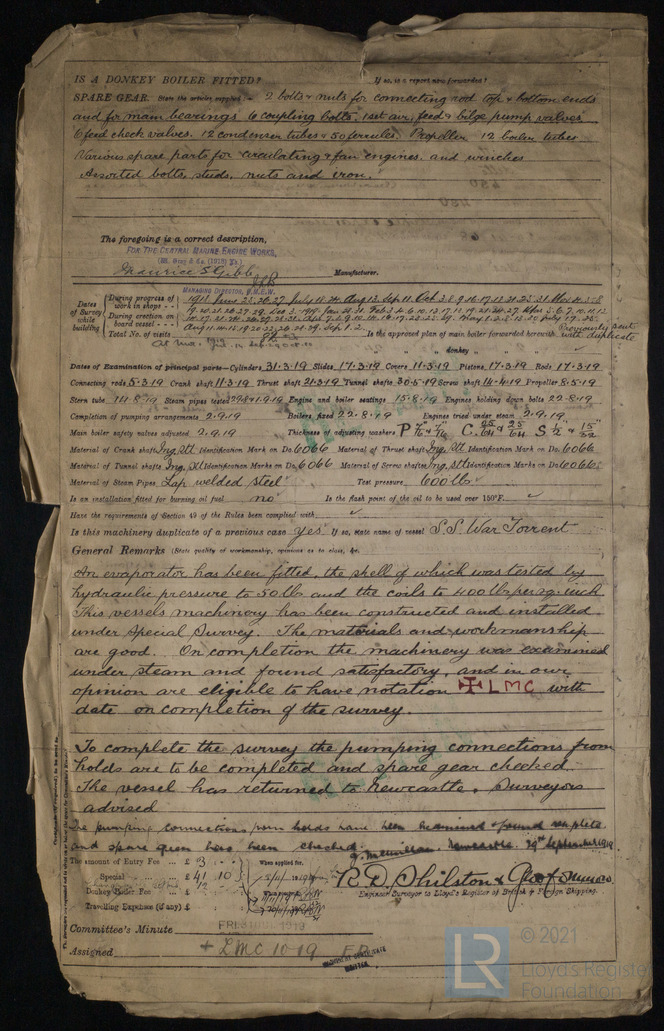 IS A DONKEY BOILER FITTED? If so, is a report now forwarded?
SPARE GEAR. State the articles supplied:— 2 bolts & nuts for connecting rod top & bottom ends
and for main bearings 6 coupling bolts, 1 set air, feed & bilge pump valves
6 feed check valves. 12 condenser tubes & 50 ferrules. Propeller 12 boiler tubes
Various spare parts for circulating & fan engines, and winches
Assorted bolts, studs, nuts and iron.
The foregoing is a correct description,
FOR THE CENTRAL MARINE ENGINE WORKS,
(Wm. Gray & Co. (1918) Ld.)
Maurice S Gibb Manufacturer.
MANAGING DIRECTOR, C.M.E.W.
Dates of Survey while building
During progress of work in shops - -
During erection on board vessel - - -
Total No. of visits Is the approved plan of main boiler forwarded herewith Previously sent with duplicate
" " " donkey " " "
Dates of Examination of principal parts—Cylinders 31.3.19 Slides 17.3.19 Covers 11.3.19 Pistons 17.3.19 Rods 17.3.19
Connecting rods 5.3.19 Crank shaft 11.3.19 Thrust shaft 21.3.19 Tunnel shafts 30.5.19 Screw shaft 14.4.19 Propeller 8.5.19
Stern tube 14.8.19 Steam pipes tested Engine and boiler seatings 15.8.19 Engines holding down bolts 22.8.19
Completion of pumping arrangements 2.9.19 Boilers fixed 22.8.19 Engines tried under steam 2.9.19
Main boiler safety valves adjusted 2.9.19 Thickness of adjusting washers P 7/16" & 7/16" C 25/64 & 25/64 S 1/2" & 15/32"
Material of Crank shaft Ing. Stl Identification Mark on Do. 6066 Material of Thrust shaft Ing. Stl Identification Mark on Do. 6066
Material of Tunnel shafts Ing. Stl Identification Marks on Do. 6066 Material of Screw shafts Ing. Stl Identification Marks on Do. 6066
Material of Steam Pipes Lap welded steel Test pressure 600 lb
Is an installation fitted for burning oil fuel no Is the flash point of the oil to be used over 150°F.
Have the requirements of Section 49 of the Rules been complied with
Is this machinery duplicate of a previous case yes If so, state name of vessel S.S. War Torrent
General Remarks (State quality of workmanship, opinions as to class, &c.
An evaporator has been fitted, the shell of which was tested by
hydraulic pressure to 50 lb and the coils to 400 lb per sq. inch
This vessels machinery has been constructed and installed
under Special Survey. The materials and workmanship
are good. On completion the machinery was examined
under steam and found satisfactory, and in our
opinion are eligible to have notation ✠ LMC with
date on completion of the survey.
To complete the survey the pumping connections from
holds are to be completed and spare gear checked.
The vessel has returned to Newcastle. Surveyors
advised
The pumping connections from holds have been examined & found complete
and spare gear has been checked. Newcastle. 29th September 1919.
The amount of Entry Fee ... £ 3 : - : When applied for,
Special ... £ 41 : 10 :
Donkey Boiler Fee ... £
Travelling Expenses (if any) £
R. D. Shilston &
Engineer Surveyor to Lloyd's Register of British & Foreign Shipping.
Committee's Minute
Assigned + LMC 10.19 F.D.
© 2021
LR Lloyd's Register
Foundation